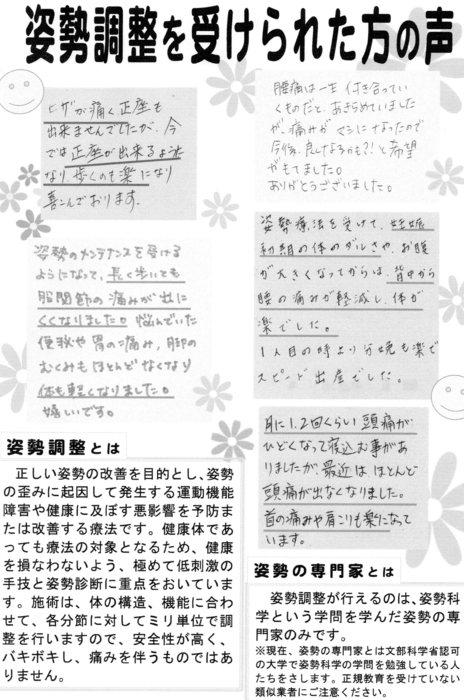 姿勢調整を受けられた方の声
ヒザが痛く正座も
出来ませんでしたが、今
では正座が出来るように
なり歩くのも楽になり
喜んでおります。
姿勢のメンテナンスを受ける
ようになって、長く歩いても
股関節の痛みが出に
くくなりました。悩んでいた
便秘や胃の痛み、脚の
むくみもほとんどなくなり
体も軽くなりました。
嬉しいです。
腰痛は一生付き合ってい
くものだと、あきらめていました
が、痛みがマシになったので
今後、良くなるかも?!と希望
がもてました。
ありがとうございました。
姿勢療法を受けて、妊娠
初期の体のダルさや、お腹
が大きくなってからは、背中から
腰の痛みが軽減し、体が
楽でした。
1人目の時より分娩も楽で
スピード出産でした。
月に1.2回くらい頭痛が
ひどくなって寝込む事があ
りましたが、最近はほとんど
頭痛が出なくなりました。
首の痛みや肩こりも楽になって
います。
姿勢調整とは
正しい姿勢の改善を目的とし、姿勢
の歪みに起因して発生する運動機能
障害や健康に及ぼす悪影響を予防ま
たは改善する療法です。健康体であ
っても療法の対象となるため、健康
を損なわないよう、極めて低刺激の
手技と姿勢診断に重点をおいていま
す。施術は、体の構造、機能に合わ
せて、各分節に対してミリ単位で調
整を行いますので、安全性が高く、
バキボキし、痛みを伴うものではあ
りません。
姿勢の専門家とは
姿勢調整が行えるのは、姿勢科
学という学問を学んだ姿勢の専
門家のみです。
※現在、姿勢の専門家とは文部科学省認可
の大学で姿勢科学の学問を勉強している人
たちをさします。正規教育を受けていない
類似業者にご注意ください。